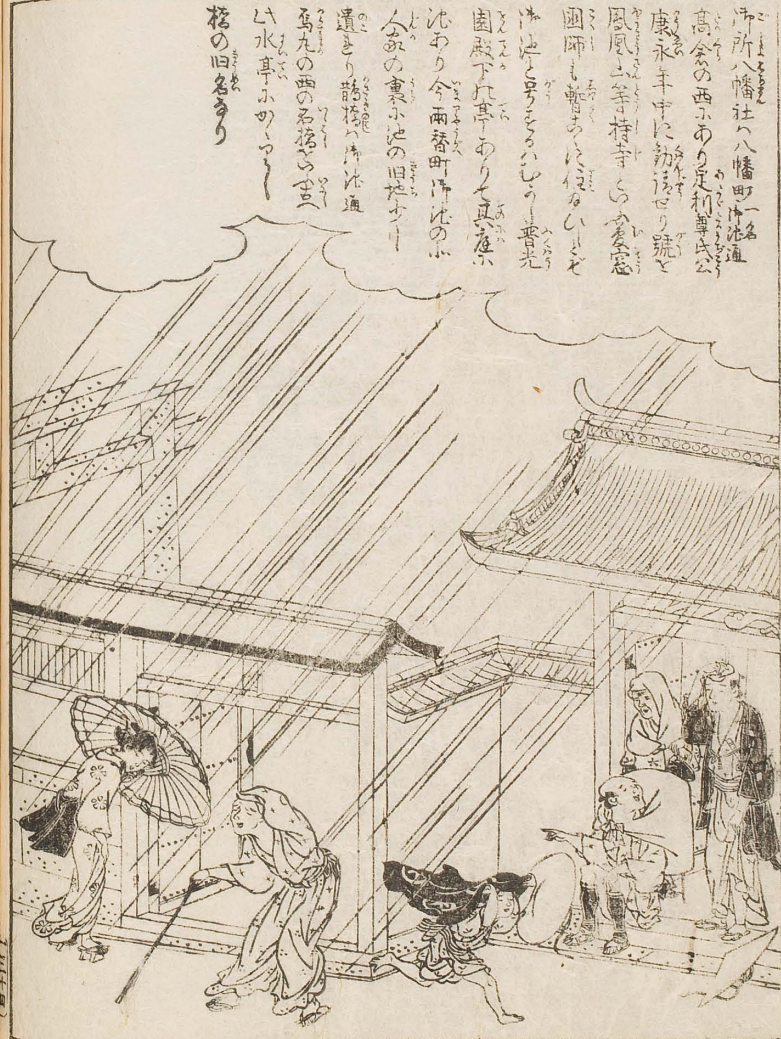 御所八幡社ハ八幡町一名御池通
高倉の西にあり足利尊氏公
康永年中に勧請せり號を
鳳凰山等持寺といふ夢窓
國師も暫こゝに住給ひしとぞ
御池と号するハむかし普光
園殿下の亭ありて其庭に
池あり今両替町御池の北
人家の裏に池の旧地少し
遺れり鵲橋ハ御池通
烏丸の西の石橋をいふ
此水亭にかゝりし
橋の旧名なり